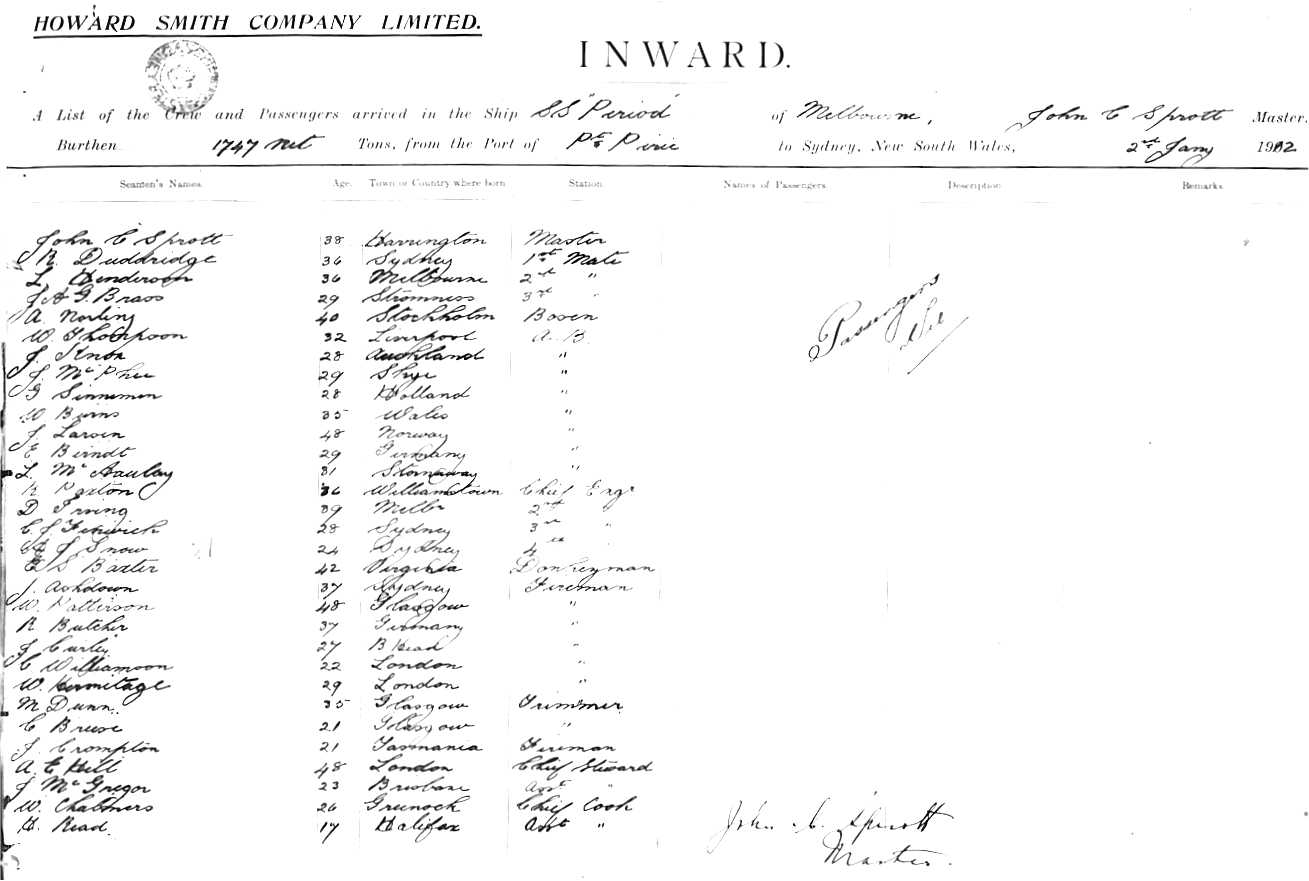 HOWARD SMITH COMPANY LIMITED.
INWARD.
A List of the Crew and Passengers arrived in the Ship SS "Period" of Melbourne, John C Sprott Master,
Burthen 1747 net Tons, from the Port of Pt Pirie to Sydney, New South Wales, 2nd Jany 1912
Seamen's Names. Age. Town or Country where born Station. Names of Passengers. Description. Remarks.
John C Sprott 38 Harrington Master
R. Duddridge 36 Sydney 1st Mate
L. Henderson 36 Melbourne 2nd "
J A G. Brass 29 Stromness 3rd "
Passengers Nil
A. Norling 40 Stockholm Bosen
W. Thompson 32 Liverpool A. B.
J. Knox 28 Auckland "
J. McPhee 29 Skye "
G Sinnemen 28 Holland "
W Burns 35 Wales "
J. Larsen 48 Norway "
E Berndt 29 Germany "
L. McAaulay 31 Stornaway "
R Paxton 36 Williamstown Chief Engr
D Irving 39 Melbe 2nd "
C. J. Fenwick 28 Sydney 3rd "
J Snow 24 Sydney 4th "
E S Baxter 42 Virginia Donkeyman
J. Ashdown 37 Sydney Fireman
W. Patterson 48 Glasgow "
R Butcher 37 Germany "
J Curley 27 B Head "
C Williamson 22 London "
W. Hermitage 29 London "
M Dunn. 35 Glasgow Trimmer
C Breese 21 Glasgow "
J. Crompton 21 Tasmania Fireman
A. E Hill 48 London Chief Steward
J McGregor 23 Brisbane Asst "
W. Chalmers 26 Greenock Chief Cook
H. Read 17 Halifax Asst "
John C. Sprott
Master.